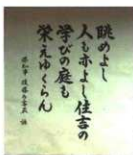 眺めよし
人も亦よし住吉の
学びの庭も
栄えゆくらん